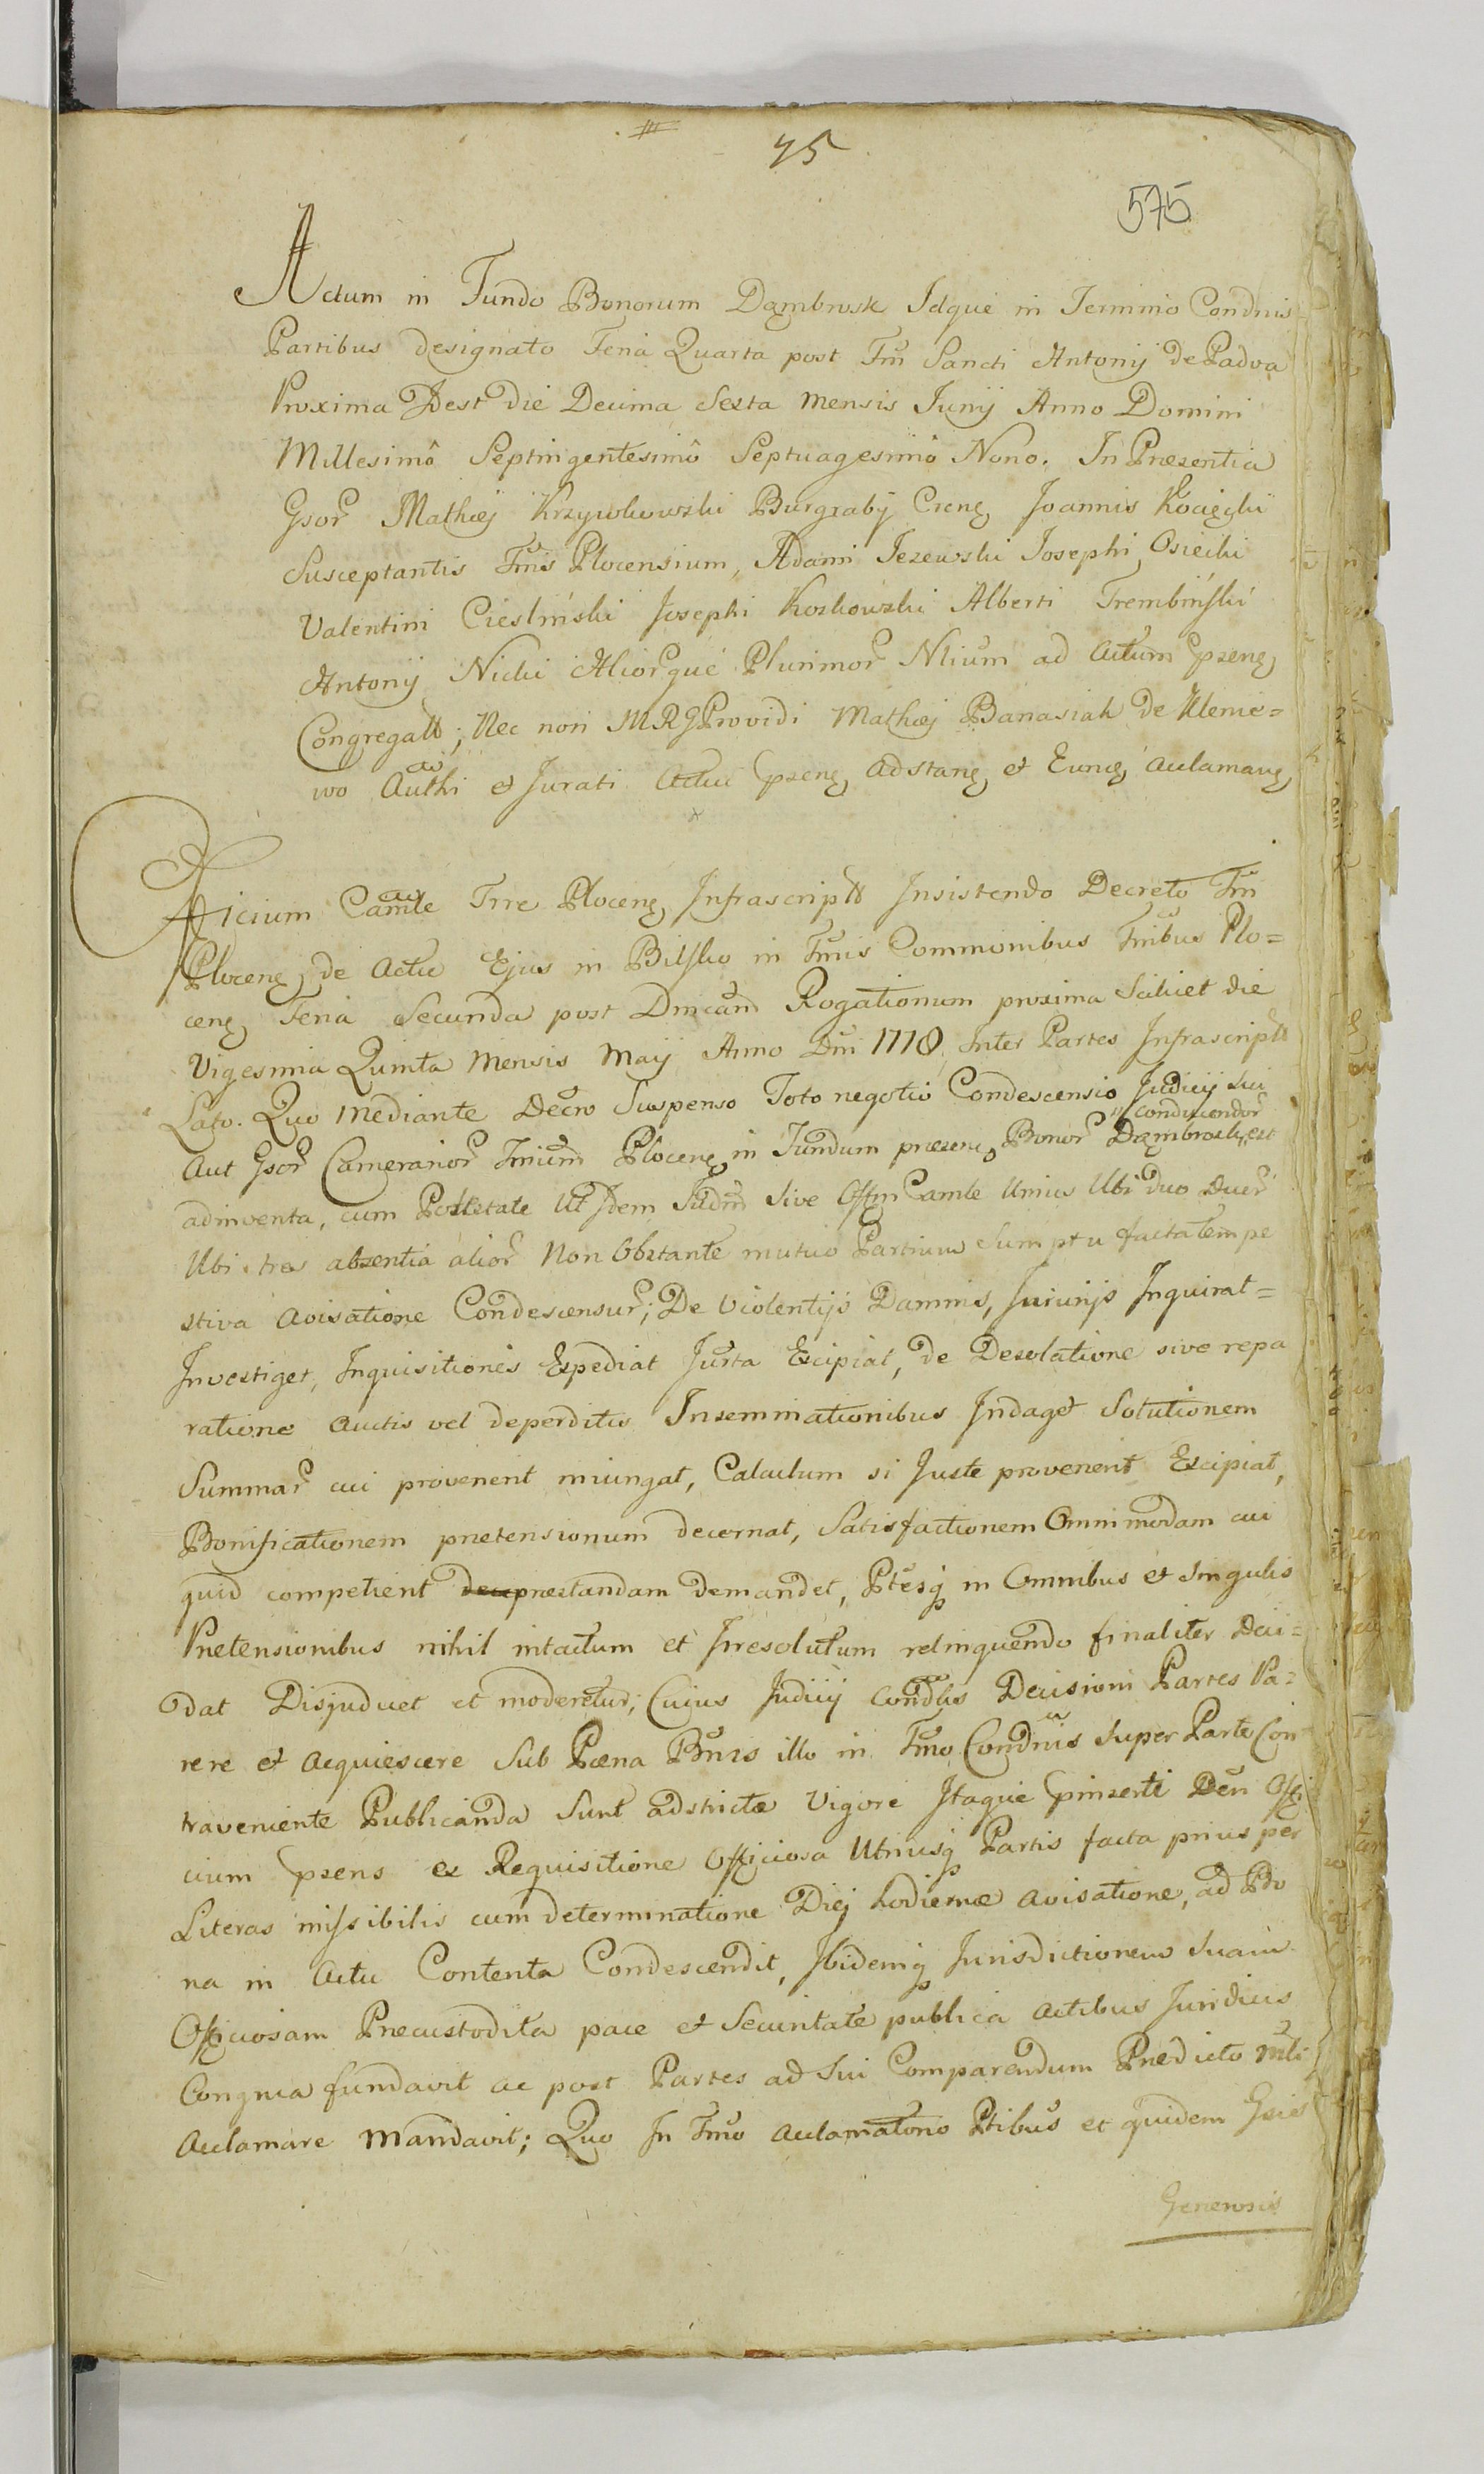 75
575
Actum in Fundo Bonorum Dąmbrosk Idque in Termino Condnis
Partibus designato Feria Quarta post Fm Sancti Antonij de Padva
Proxima Idest die Decima Sexta Mensis Junij Anno Domini
Millesimô Septingentesimô Septuagesimô Nono. In Præsentia
Gsor Mathæj Krzywkowski Burgrabij Crenę Joannis Kocięcki
Susceptantis Tmis Plocensium, Adami Jezewski Josephi Osiecki
Valentini Cieslinski Josephi Koskowski Alberti Trembinski
Antonij Nicki Aliorque Plurimor Nlium ad Actum psenę
Congregatt; Nec non MRGProvidi Mathæj Banasiak de Klenie=
wo Authi et Jurati Actui psenę adstanę et Eunę aclamanę
Officium Camle Trre Plocenę Infrascriptt Insistendo Decreto Tm
Plocenę de Actu Ejus in Bilsko in Tmis Commonibus Tmibus Plo=
cenę Feria Secunda post Dmcam Rogationum proxima Scilicet die
Vigesima Quinta Mensis Maij Anno Dni 1778 Inter Partes Infrascriptt
Lato. Quo mediante Decro Suspenso Toto negotio Condescensio Judicij sui
conducendor
aut Gsor Camerarior Tmium Plocenę in Fundum præsenę Bonor Dąmbrosk, est
adinventa, cum Potestate Ut Idem Judm sive Offm Camle Unius Ubi duo Duor
Ubi tres absentia alior Non Obstante mutuo Partium Sumptu facta tempe
stiva avisatione Condescensur; De Violentijs Damnis, Injurijs Inquirat=
Investiget, Inquisitiones Expediat Jurta Excipiat, de Desolatione sive repa
ratione auctis vel deperditis Inseminationibus Indaget Solutionem
Summar cui provenerit iniungat, Calculum si Juste provenerit Excipiat,
Bonificationem prætensionum decernat, Satisfactionem Omnimodam cui
quid competierit præstandam Demandet, Ptesq in Omnibus et Singulis
Prætensionibus nihil intactum et Irresolutum relinquendo finaliter Deci=
dat Disjudicet et moderetur; Cujus Judicij Condlis Decisioni Partes Pa=
rere et acquiescere Sub Pœna Bnis illo in Tmo Condnis super Parte Con
traveniente Publicanda Sunt adstrictæ Vigore Itaque pinserti Den Offi
cium psens ex Requisitione Officiosa Utriusq Partis facta prius per
Literas missibilis cum determinatione Diej hodiernæ avisatione, ad Bo
na in Actu Contenta Condescendit, Ibidemq Jurisdictionem Suam
Officiosam Præcustodita pace et Securitate publica Actibus Juridicis
Congrua fundavit ac post Partes ad Sui Comparendum Prædicto Mli
Aclamare Mandavit; Quo In Tmo aclamatono Ptibus et quidem Gsis
Generosis